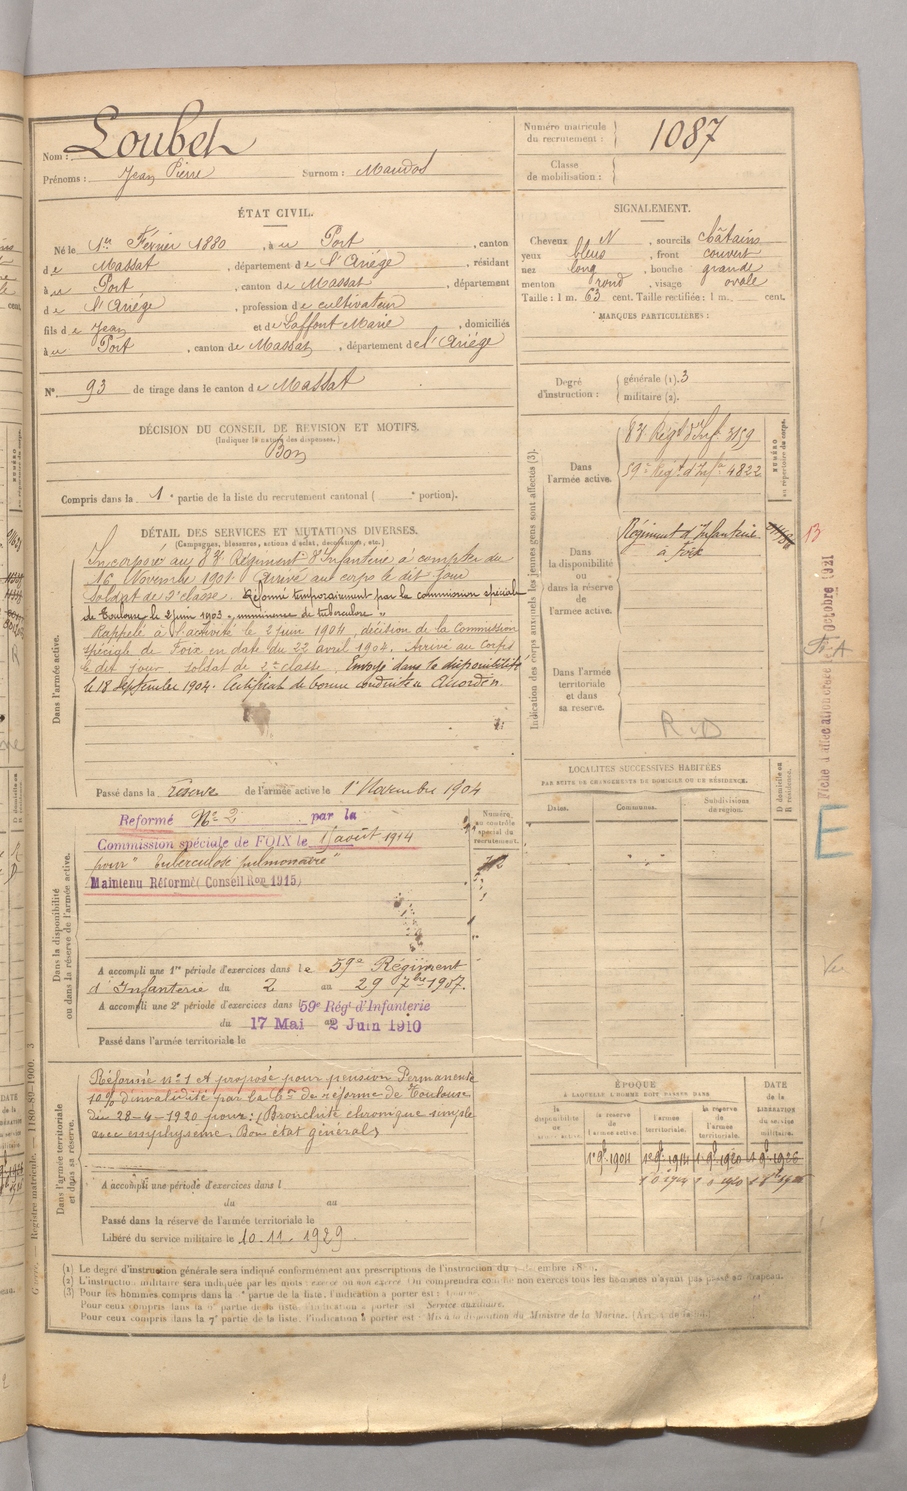 Nom : Loubet
Prénoms : Jean Pierre Surnom : Mandot
Numéro matricule du recrutement : 1087
Classe de mobilisation :
ÉTAT CIVIL.
Né le 1er Février 1880, à u Port, canton
de Massat, département de l'Ariège, résidant
à u Port, canton de Massat, département
de l'Ariège, profession de cultivateur
fils de Jean et de Laffont Marie, domiciliés
à u Port, canton de Massat, département de l'Ariège
N° 93 de tirage dans le canton de Massat
SIGNALEMENT.
Cheveux N, sourcils châtains
yeux bleus, front couvert
nez long, bouche grande
menton rond, visage ovale
Taille : 1 m. 63 cent. Taille rectifiée : 1 m. cent.
MARQUES PARTICULIÈRES :
Degré d'instruction : générale (1). 3
militaire (2).
DÉCISION DU CONSEIL DE REVISION ET MOTIFS.
(Indiquer la nature des dispenses.)
Bon
Compris dans la 1e partie de la liste du recrutement cantonal ( e portion).
DÉTAIL DES SERVICES ET MUTATIONS DIVERSES.
(Campagnes, blessures, actions d'éclat, décorations, etc.)
Dans l'armée active.
Incorporé au 83e Régiment d'Infanterie à compter du
16 Novembre 1901. Arrivé au corps le dit jour
Soldat de 2e classe. Réformé temporairement par la commission spéciale
de Toulouse le 2 juin 1903 "imminence de tuberculose"
Rappelé à l'activité le 2 juin 1904, décision de la Commission
Spéciale de Foix en date du 22 avril 1904. Arrivé au corps
le dit jour soldat de 2e classe. Envoyé dans la disponibilité
le 18 Septembre 1904. Certificat de bonne conduite "Accordé".
Passé dans la réserve de l'armée active le 1er Novembre 1904
Indication des corps auxquels les jeunes gens sont affectés (3).
NUMÉRO au répertoire du corps.
Dans l'armée active.
83e Régt d'Inf. 3159
59e Régt d'Infie 4822
Dans la disponibilité ou dans la réserve de l'armée active.
Régiment d'Infanterie
à Foix
Dans l'armée territoriale et dans sa réserve.
R.D
13
Octobre 1921
E
LOCALITÉS SUCCESSIVES HABITÉES
PAR SUITE DE CHANGEMENTS DE DOMICILE OU DE RÉSIDENCE.
Dates. Communes. Subdivisions de région. D domicile ou R résidence.
Dans la disponibilité ou dans la réserve de l'armée active.
Numéro au contrôle spécial du recrutement.
Réformé No 2 par la
Commission spéciale de FOIX le août 1914
pour "tuberculose pulmonaire"
Maintenu Réformé (Conseil Ron 1915)
A accompli une 1re période d'exercices dans le 59e Régiment
d'Infanterie du 2 au 29 7bre 1907.
A accompli une 2e période d'exercices dans l 59e Régt d'Infanterie
du 17 Mai au 2 Juin 1910
Passé dans l'armée territoriale le
Dans l'armée territoriale et dans sa réserve.
Réformé n° 1 et proposé pour pension Permanente
10% d'invalidité par la Con de réforme de Toulouse
du 28-4-1920 pour : (Bronchite chronique simple
avec emphysème. Bon état général)
A accompli une période d'exercices dans l
du au
Passé dans la réserve de l'armée territoriale le
Libéré du service militaire le 10-11-1929
ÉPOQUE
À LAQUELLE L'HOMME DOIT PASSER DANS
DATE de la LIBÉRATION du service militaire.
la disponibilité de l'armée active. la réserve de l'armée active. l'armée territoriale. la réserve de l'armée territoriale.
1er 9bre 1904 1er 9bre 1914 1er 9bre 1920 1er 9bre 1926
(1) Le degré d'instruction générale sera indiqué conformément aux prescriptions de l'instruction du
(2) L'instruction militaire sera indiquée par les mots : exercé ou non exercé. On comprendra comme non exercés tous les hommes n'ayant pas passé au drapeau.
(3) Pour les hommes compris dans la 1re partie de la liste, l'indication à porter est :
Pour ceux compris dans la 6e partie de la liste, l'indication à porter est : Service auxiliaire.
Pour ceux compris dans la 7e partie de la liste, l'indication à porter est : Mis à la disposition du Ministre de la Marine.